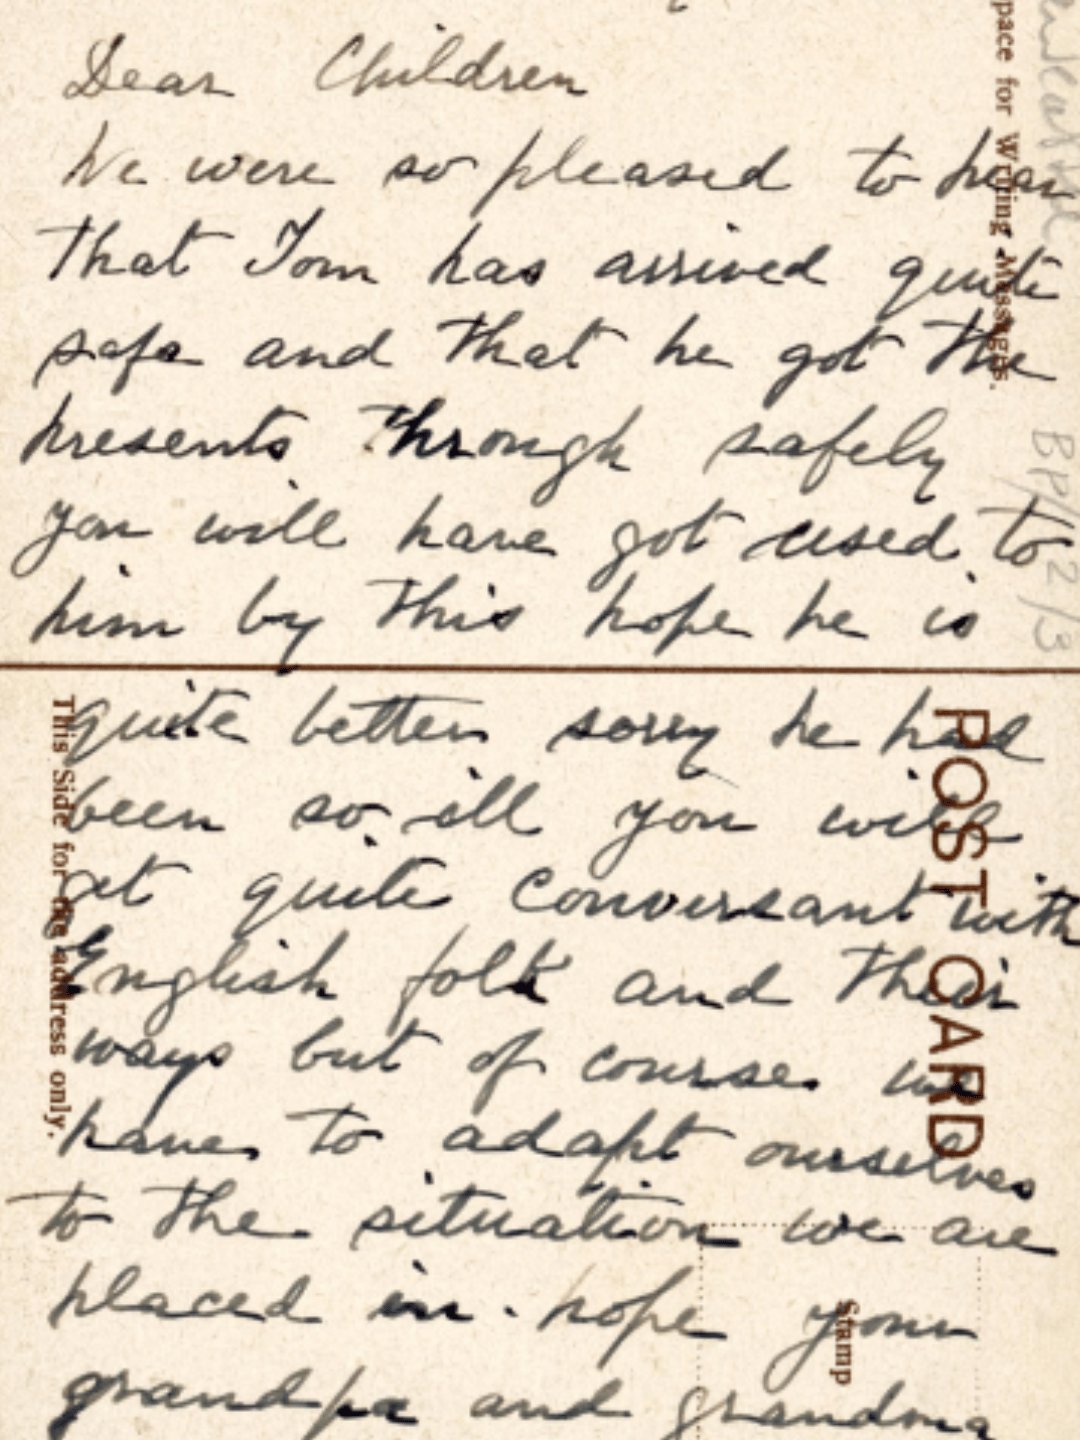 Dear Children
We were so pleased to hear
that Tom has arrived quite
safe and that he got the
presents through safely
you will have got used to
him by this hope he is
quite better sorry he had
been so ill you will
get quite conversant with
English folk and their
ways but of course we
have to adapt ourselves
to the situation we are
placed in. hope your
grandpa and grandma
pace for Writing Messages.
BP/2/3
POST CARD
This Side for the address only.
Stamp